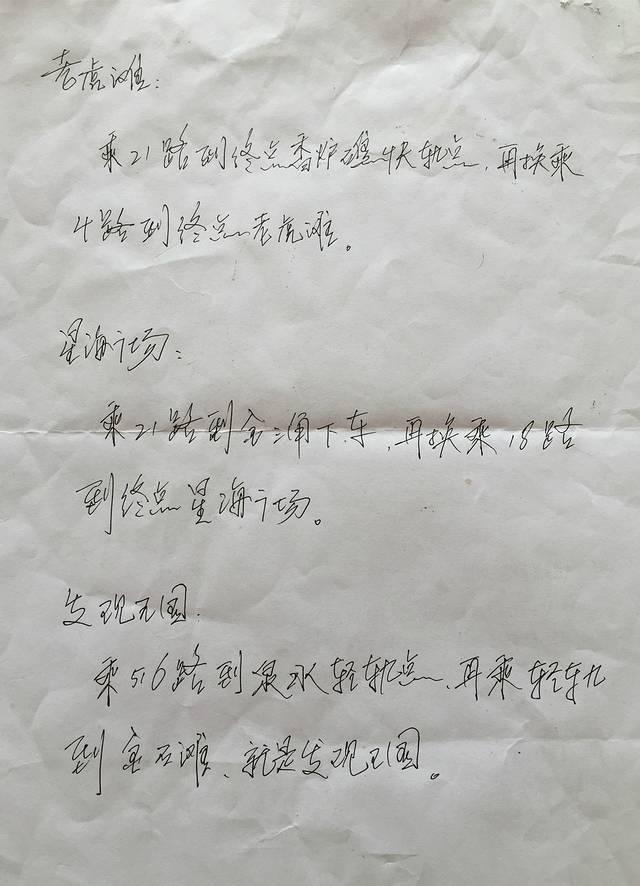 老虎滩：
乘21路到终点香炉礁快轨点，再换乘
4路到终点老虎滩。
星海广场：
乘21路到金三角下车，再换乘18路
到终点星海广场。
发现王国：
乘516路到泉水轻轨点，再乘轻轨
到金石滩、就是发现王国。